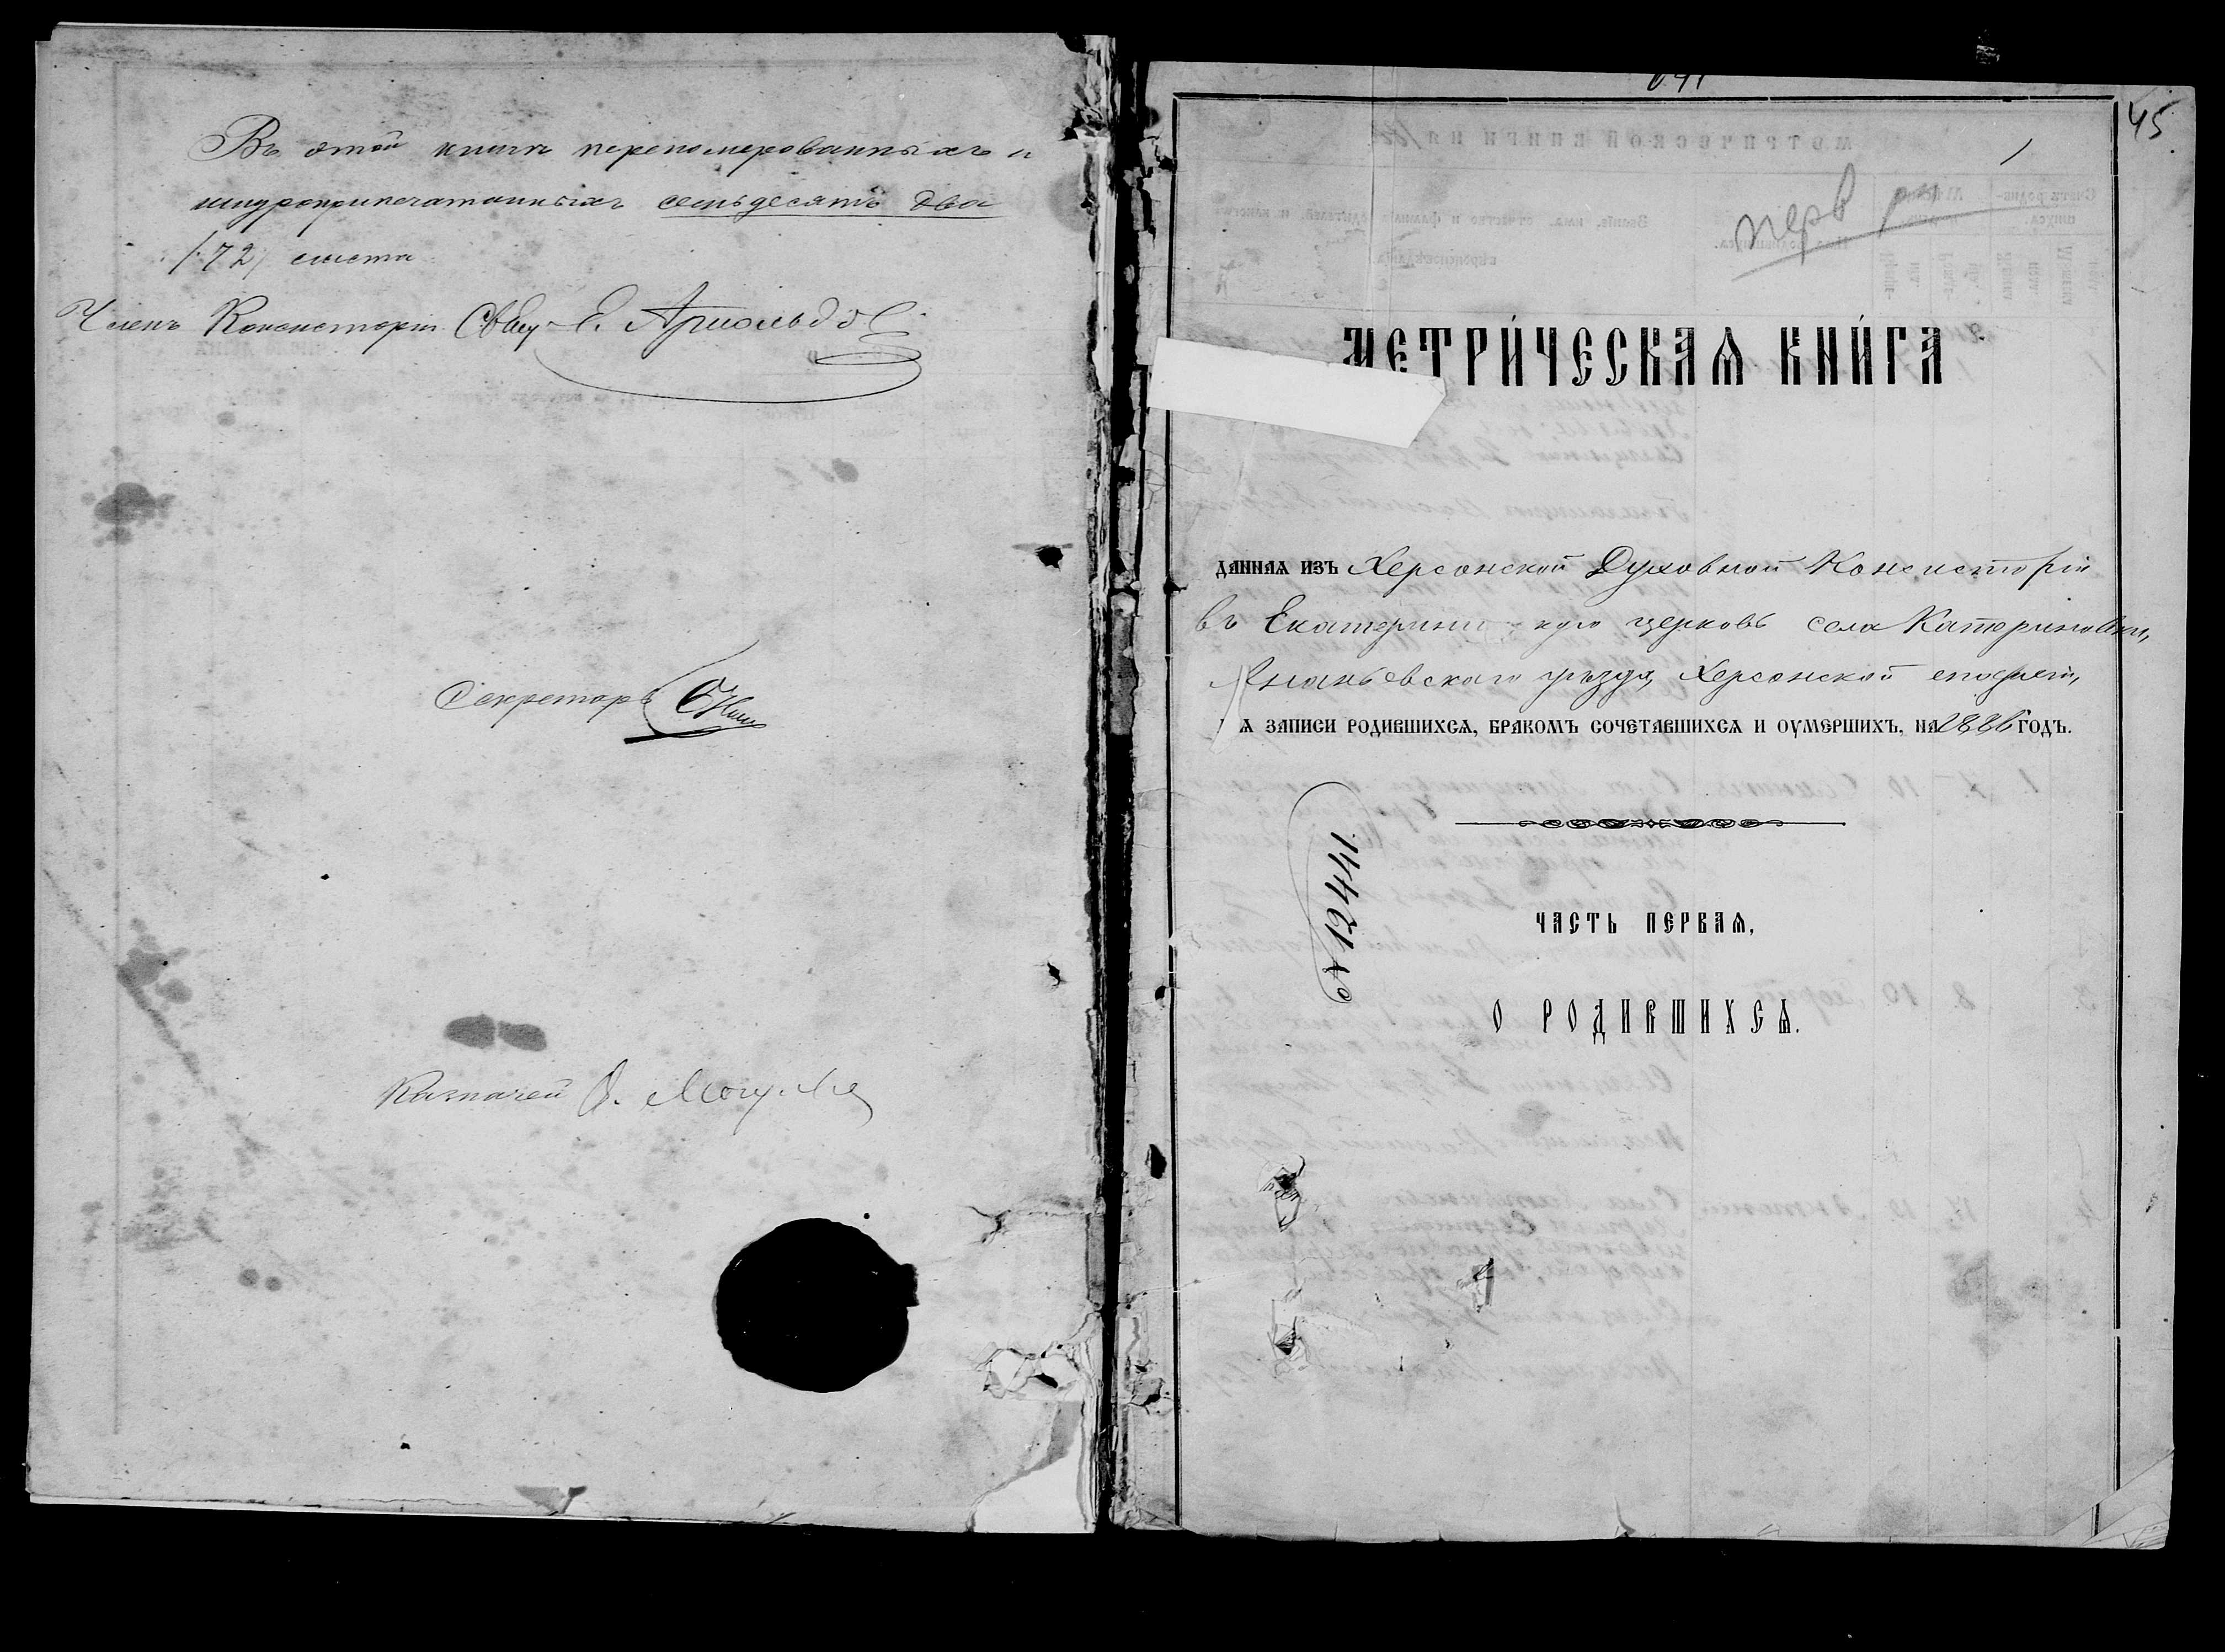 Въ этой книге перенумерованныхъ и
шнуроприпечатанныхъ семьдесятъ два
/72/ листа
Членъ Консисторіи Свящ. Е. Арнольдо
Секретарь
Казначей
45
1
перв
МЕТРИ́ЧЕСКАѦ КНИ́ГА
ДАННАѦ ИЗЪ Херсонской Духовной Консисторіи
въ Екатерин кую церковь села Катериновки,
Ананьевскаго уезда, Херсонской епархіи,
Ѧ ЗАПИСИ РОДИВШИХСѦ, БРАКОМЪ СОЧЕТАВШИХСѦ И ОУМЕРШИХЪ, НА 1886 ГОДЪ.
ЧАСТЬ ПЕРВАѦ,
О РОДИВШИХСѦ.